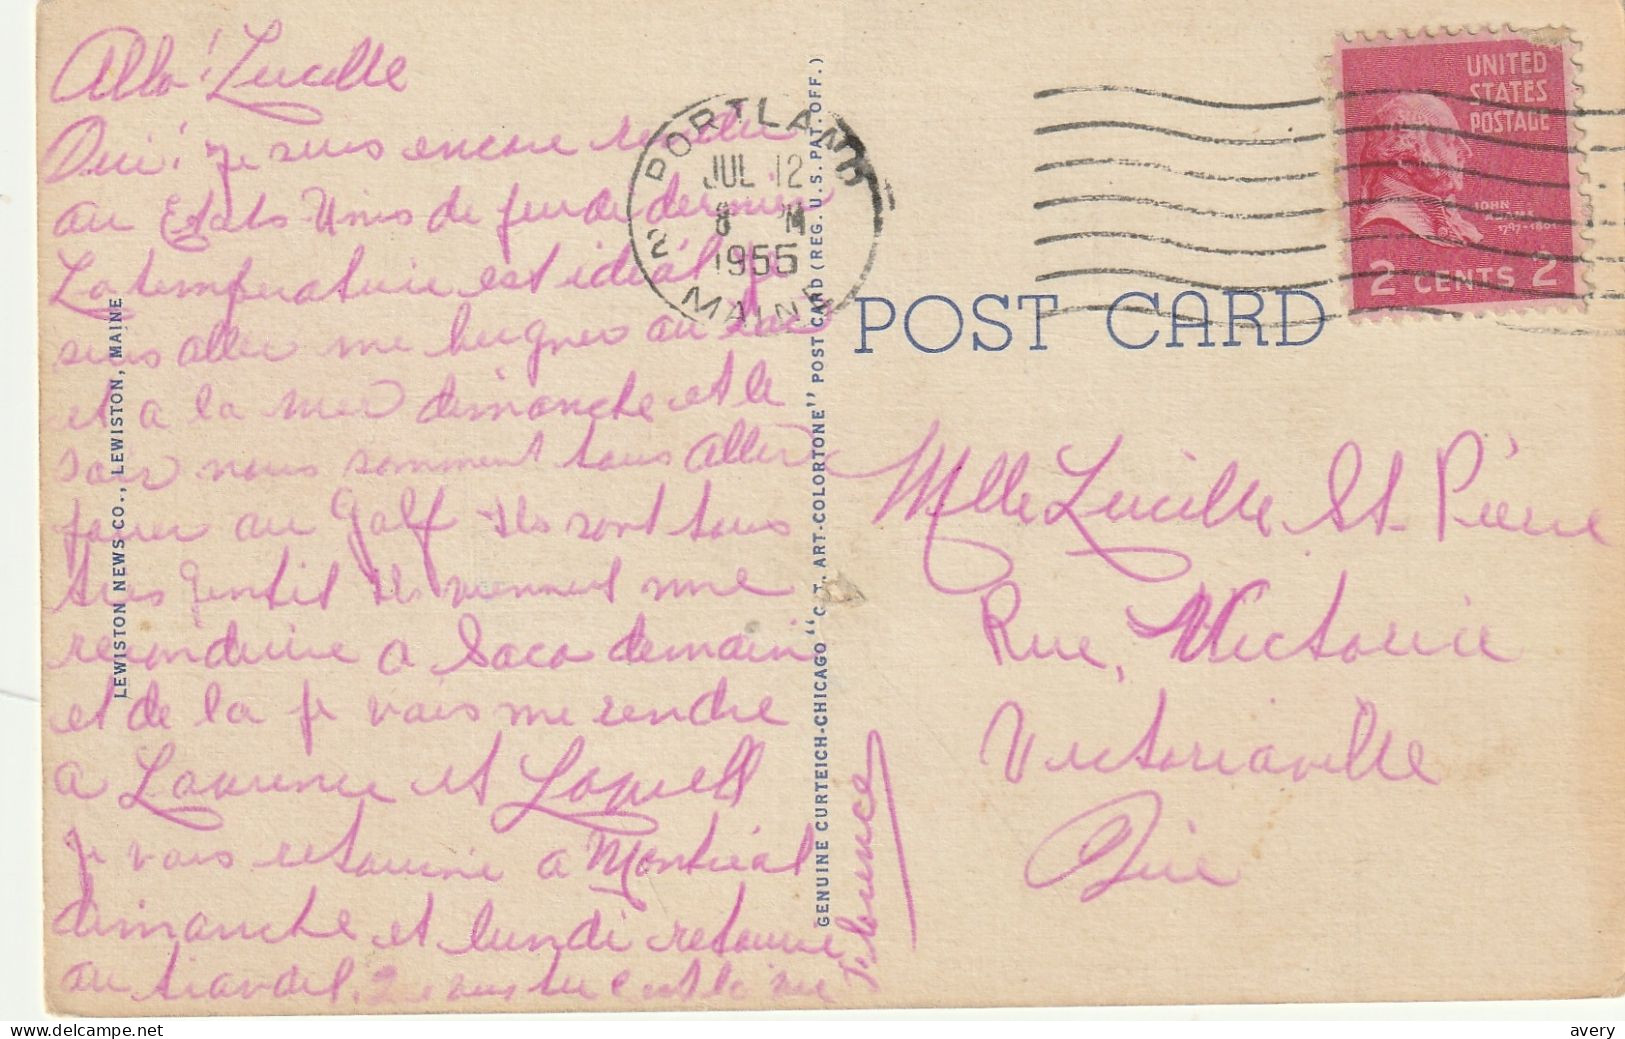 Allo! Lucille
Oui! je suis encore rendue
au Etats Unis de jeudi dernier
La temperature est idéal je
suis aller me beigner au Lac
et a la mer dimanche et le
soir nous somment tous aller
jouer au Golf Ils sont tous
tres gentil Ils viennent me
reconduire a Saco demain
et de la je vais me rendre
a Laurence et Lowell
je vais retourne a Montréal
dimanche et lundi retourne
au travail.
Florence
LEWISTON NEWS CO., LEWISTON, MAINE
GENUINE CURTEICH-CHICAGO "C. T. ART-COLORTONE" POST CARD (REG. U. S. PAT. OFF.)
PORTLAND 2
JUL 12
8 M
1955
MAINE
2
UNITED
STATES
POSTAGE
JOHN
ADAMS
1797-1801
2 CENTS 2
POST CARD
Mlle Lucille St-Pierre
Rue, Victoria
Victoriaville
Que
avery